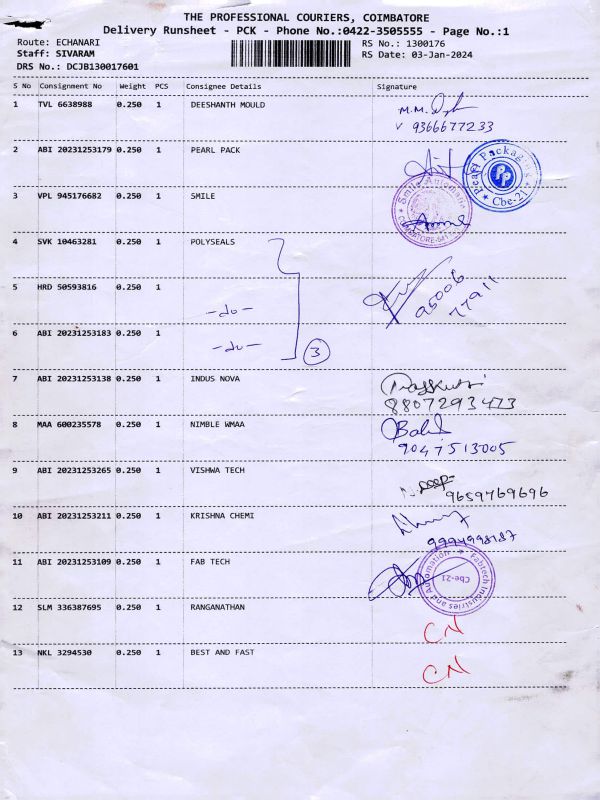 THE PROFESSIONAL COURIERS, COIMBATORE
Delivery Runsheet - PCK - Phone No.:0422-3505555 - Page No.:1
Route: ECHANARI RS No.: 1300176
Staff: SIVARAM RS Date: 03-Jan-2024
DRS No.: DCJB130017601
S No Consignment No Weight PCS Consignee Details Signature
1 TVL 6638988 0.250 1 DEESHANTH MOULD M.M.
9366677233
2 ABI 20231253179 0.250 1 PEARL PACK
Pearl Packaging PP Cbe-21
3 VPL 945176682 0.250 1 SMILE
4 SVK 10463281 0.250 1 POLYSEALS
5 HRD 50593816 0.250 1 -do- 95006 77911
6 ABI 20231253183 0.250 1 -do- 3
7 ABI 20231253138 0.250 1 INDUS NOVA
8807293473
8 MAA 600235578 0.250 1 NIMBLE WMAA
9047513005
9 ABI 20231253265 0.250 1 VISHWA TECH
9659769696
10 ABI 20231253211 0.250 1 KRISHNA CHEMI
9994998187
11 ABI 20231253109 0.250 1 FAB TECH
Fabtech Industries and Automation Cbe-21
12 SLM 336387695 0.250 1 RANGANATHAN CN
13 NKL 3294530 0.250 1 BEST AND FAST CN